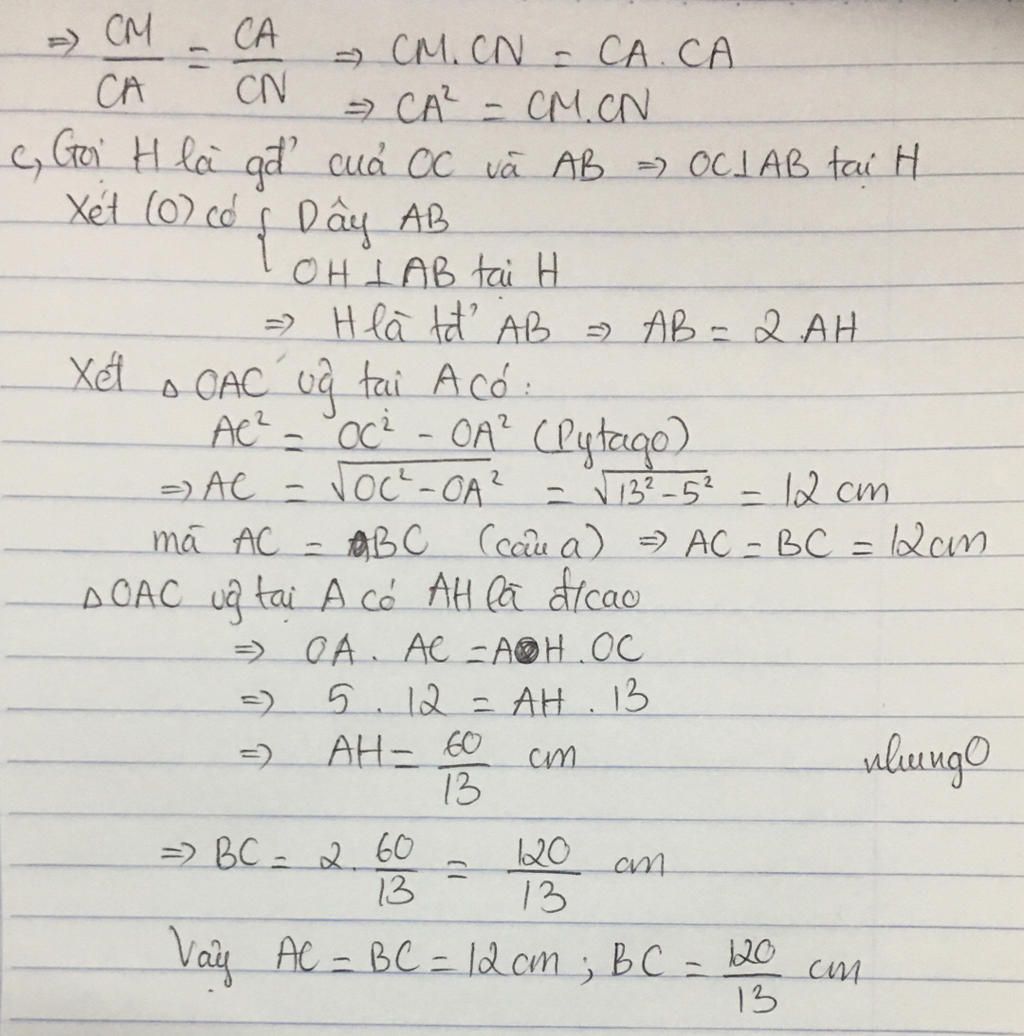 ⇒ CM/CA = CA/CN ⇒ CM.CN = CA.CA
⇒ CA² = CM.CN
c, Gọi H là gđ' cuả OC và AB ⇒ OC⊥AB tại H
Xét (O) có { Dây AB
OH⊥AB tại H
⇒ H là tđ' AB ⇒ AB = 2.AH
Xét △OAC vg tại A có:
AC² = OC² - OA² (Pytago)
⇒ AC = √(OC²-OA²) = √(13²-5²) = 12 cm
mà AC = BC (câu a) ⇒ AC = BC = 12cm
△OAC vg tại A có AH là đ/cao
⇒ OA. AC = AH.OC
⇒ 5 . 12 = AH . 13
⇒ AH = 60/13 cm
nhungO
⇒ BC = 2. 60/13 = 120/13 cm
Vậy AC = BC = 12cm; BC = 120/13 cm